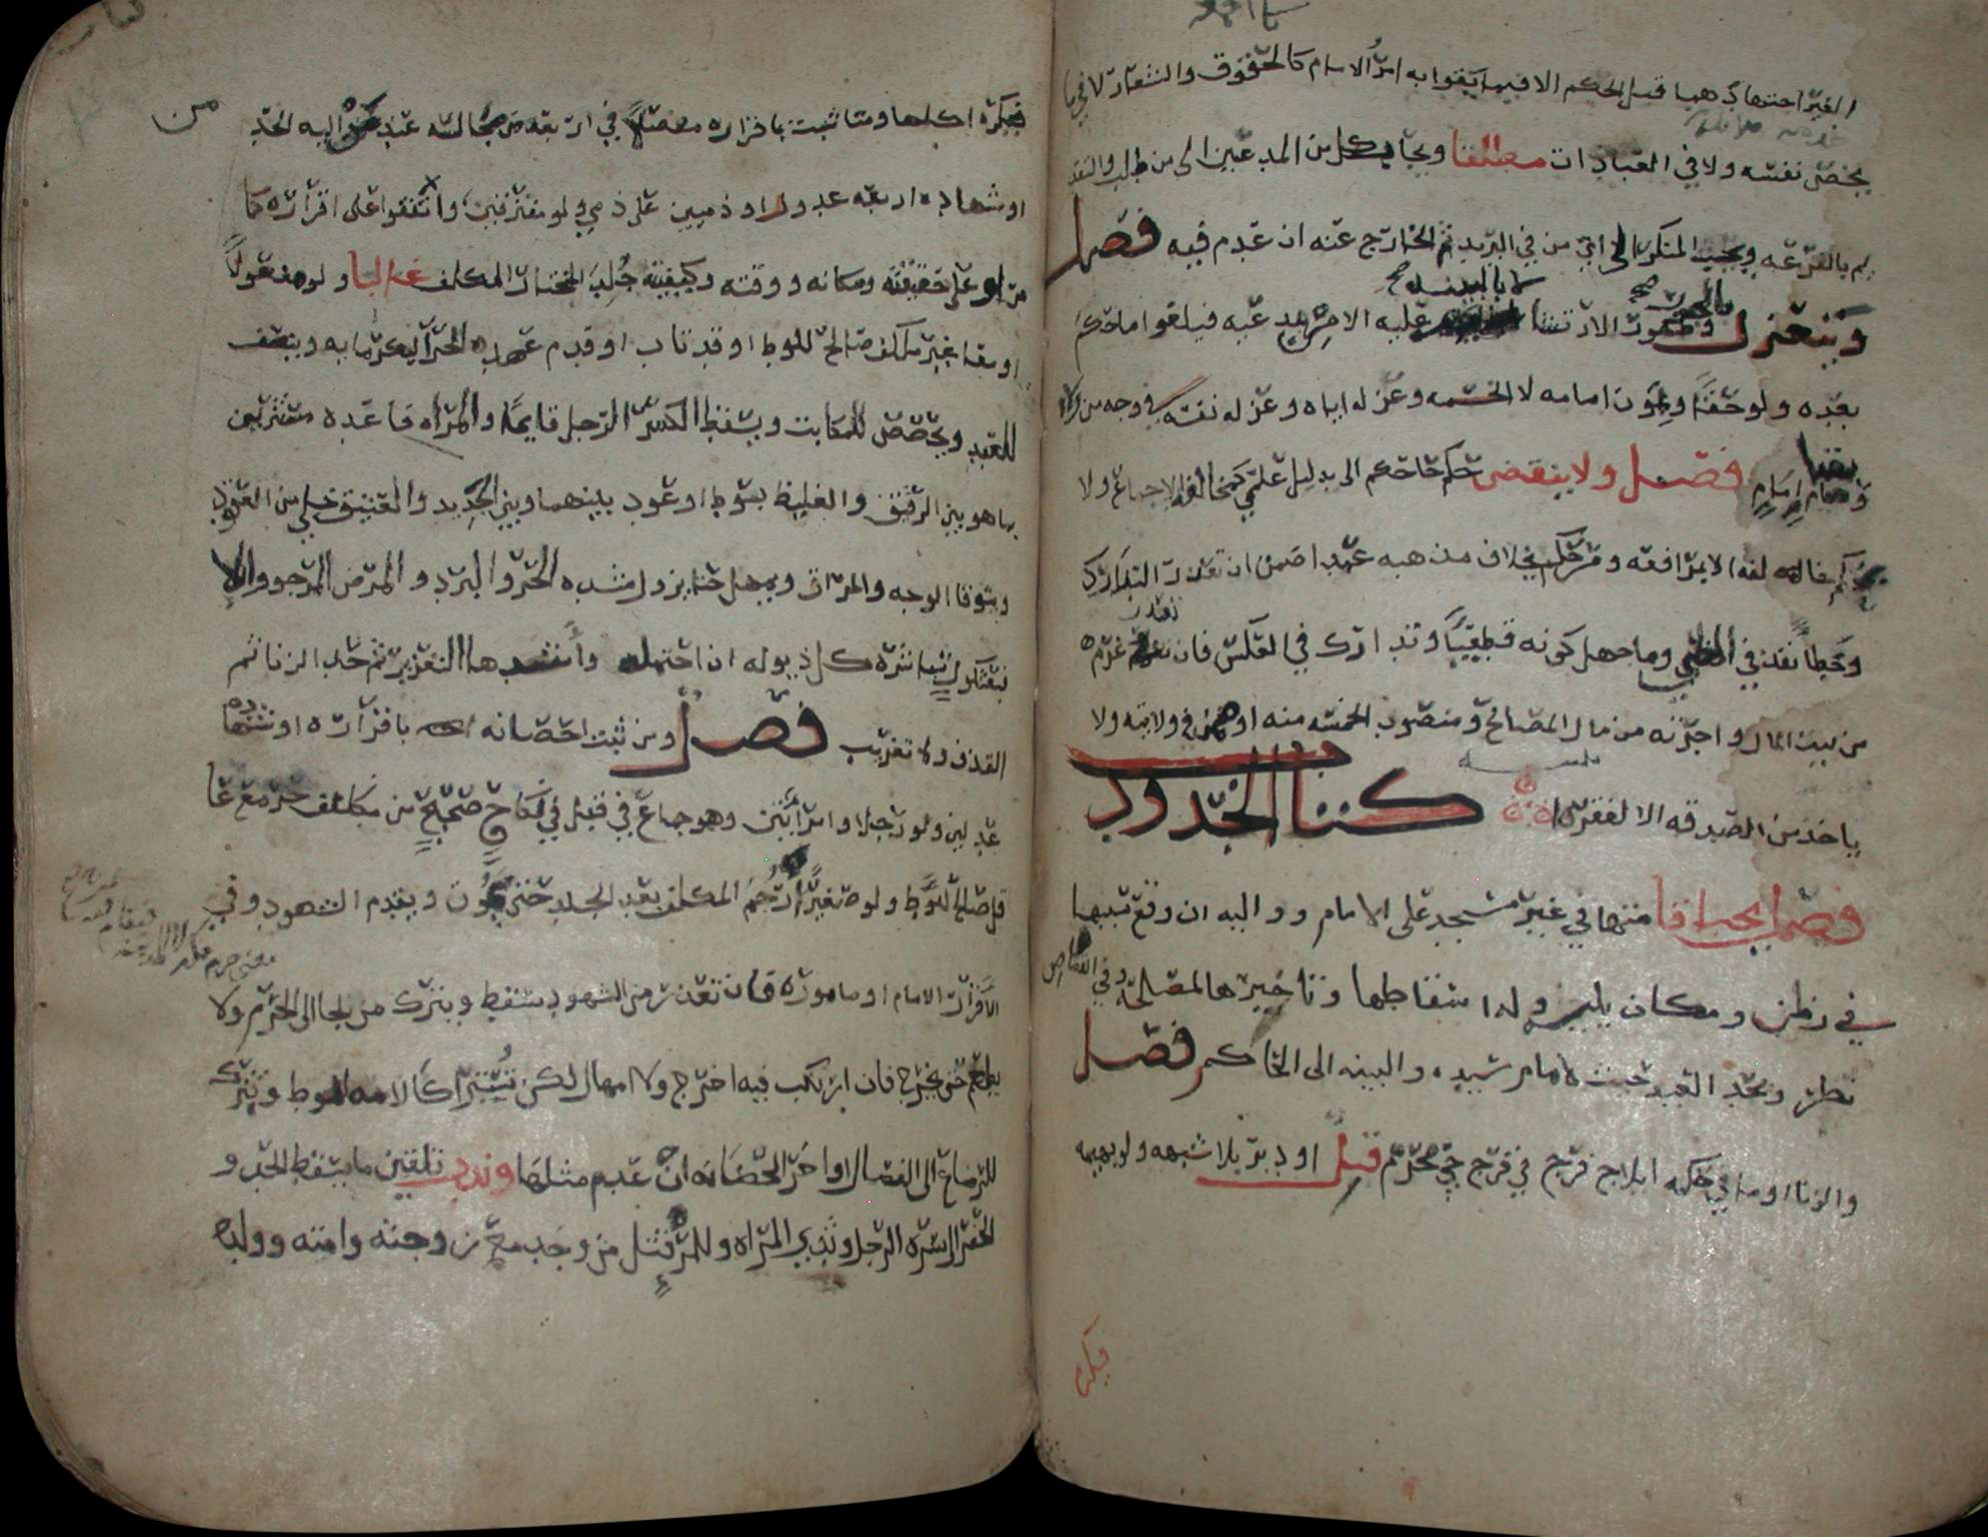 الغير اجتهادي هما قبل الحكم الا فيما يقوا به امر الاسلام كالحقوق والشعار لا فيما
يخص نفسه ولا في العبادات مطلقا ويجاب كل من المدعيين الى من طلب والتقديم
بالقرعه ويجيب المنكر الى اي من في البريد ثم الخارج عنه ان عدم فيه فصل
وينعزل بالجور وظهور الارتشا لا بالبينه عليه الا مزيد عليه فيلغوا ما حكم
بعده ولو حقا وبموت امامه لا الخمسه وعزله اياه وعزله نفسه في وجه من ولاه
وبقيام امام فصل ولا ينقض حكم حاكم الا بدليل علمي كمخالفه الاجماع ولا
محكم خالفه الا بمرافعه ومن حكم بخلاف مذهبه عمدا ضمن ان تعذر التدارك
وخطأ نفذ في الظني وما جهل كونه قطعيا وتدارك في العكس فان تعذر غرم
من بيت المال واجرته من مال المصالح ومنصوب الخمسه منه او ممن في ولايته ولا
ياخذ من الصدقه الا لفقره كتاب الحدود
فصل يجب اقامتها في غير مسجد على الامام وواليه ان وقع سببها
في زمن ومكان يليه وله اسقاطها وتاخيرها لمصلحة وفي القصاص
نظر ويحد العبد حيث لا امام سيده والبينه الى الحاكم فصل
والزنا وما في حكمه ايلاج فرج في فرج حي محرم قبل او دبر بلا شبهه ولو بهيمه
فيكره
فيكره اكلها ومتا ثبت باقراره مفصلا في اربعه من مجالسه عند من اليه الحد
او شهادة اربعه عدول او ذميين على ذمي ولو مفترقين واتفقوا على اقراره كما
مر او على حقيقته ومكانه ووقته وكيفيته جلد المختار المكلف غالبا ولو مفعولا
او مع غير مكلف صالح للوط او قد تاب او قدم عهده الحر البكر مايه وينصف
للعبد ويحصص للمكاتب ويسقط الكسر الرجل قايما والمراه قاعده مستترين
بما هو بين الرقيق والغليظ بسوط او عود بينهما وبين الجديد والعتيق خلي من العقود
ويتوقا الوجه والمراق ويمهل حتا يزول شده الحر والبرد والمرض المرجو والا
فبعثكول تباشره كل ذيوله ان احتمله واشدها التعزير ثم حد الزنا ثم
القذف ولا تغريب فصل ومن ثبت احصانه باقراره او شهادة
عدلين ولو رجلا وامرأتين وهو جماع في قبل في نكاح صحيح من مكلف حر مع عاقل
صالح للوط ولو صغيرا رجم المكلف بعد الجلد حتى يموت ويقدم الشهود وفي
الاقرار الامام او ماموره فان تعذر من الشهود سقط ويترك من لجا الى الحرم ولا
يطعم حتى يخرج فان ارتكب فيه اخرج ولا امهال لكن تستبرا كالامه للوط وتترك
للرضاع الى الفصال او اخر الحضانه ان عدم مثلها وندب تلقين ما يسقط الحد و
الحفر الى سره الرجل وثدي المراه وللمرء قتل من وجد مع زوجته وامته وولده
من